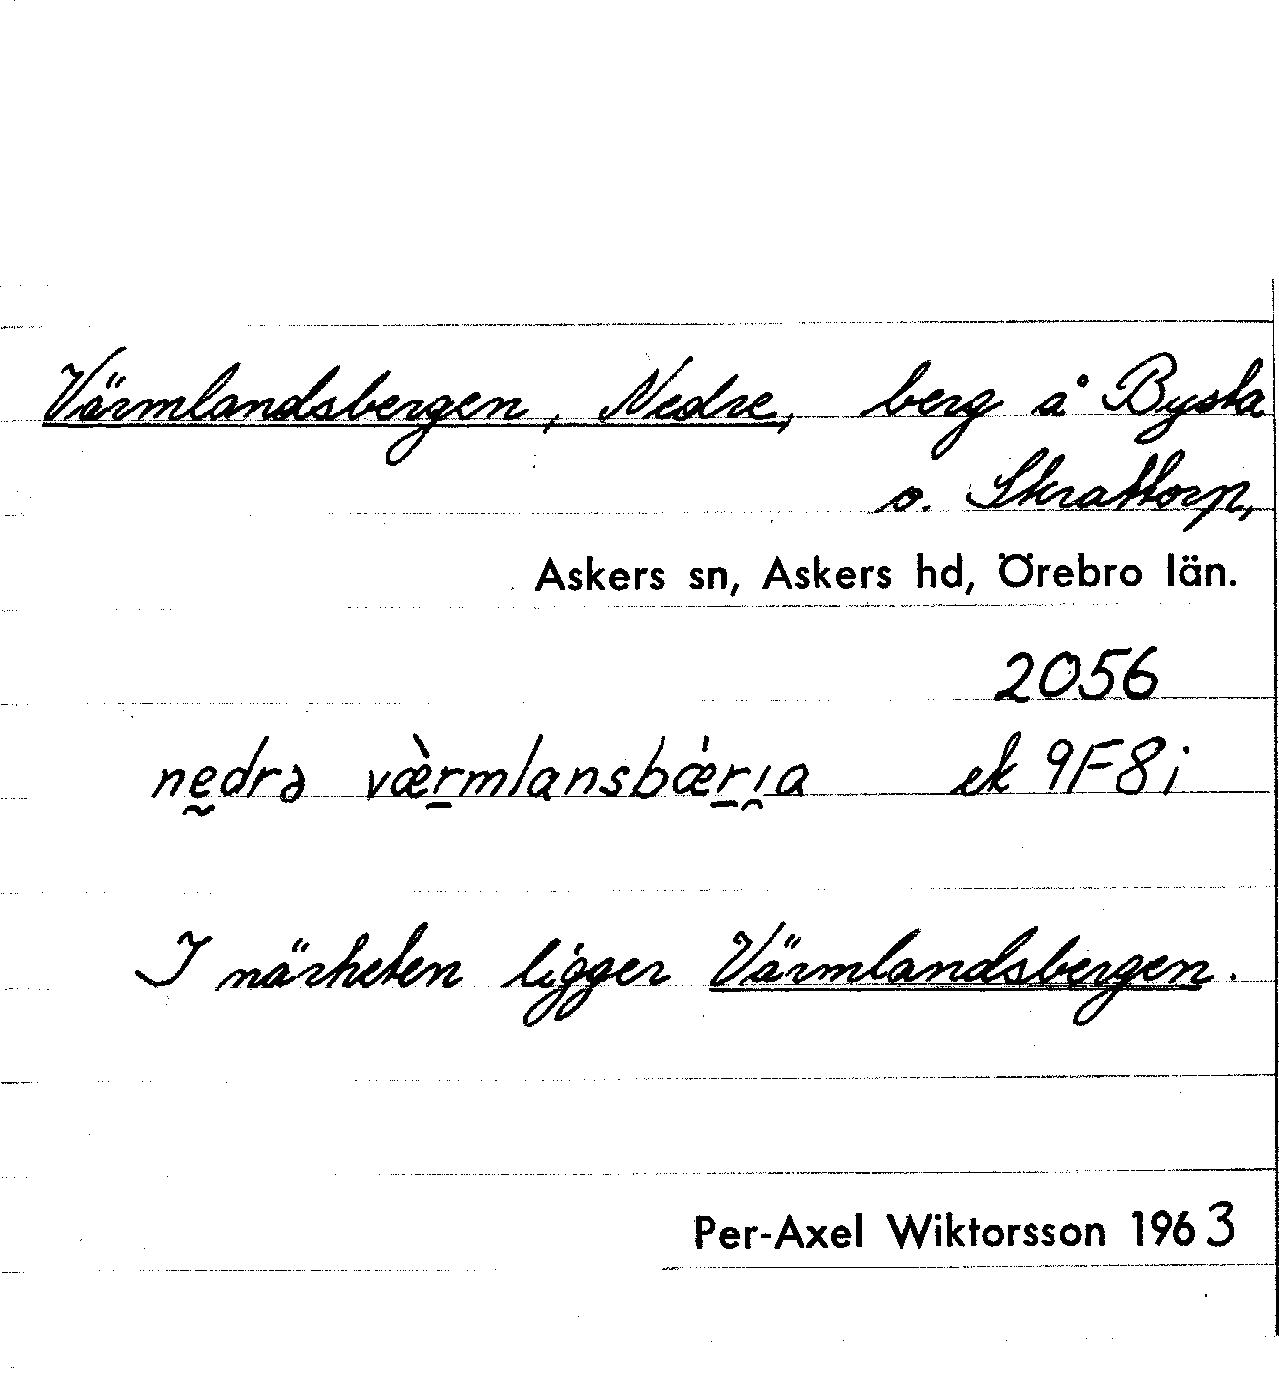 Värmlandsbergen, Nedre, berg å Bysta
o. Skrattorp,
Askers sn, Askers hd, Örebro län.
2056
nḛdrə væ̀r̲mlansbæ̍r̲ı̯a ek 9F8i
I närheten ligger Värmlandsbergen.
Per-Axel Wiktorsson 1963